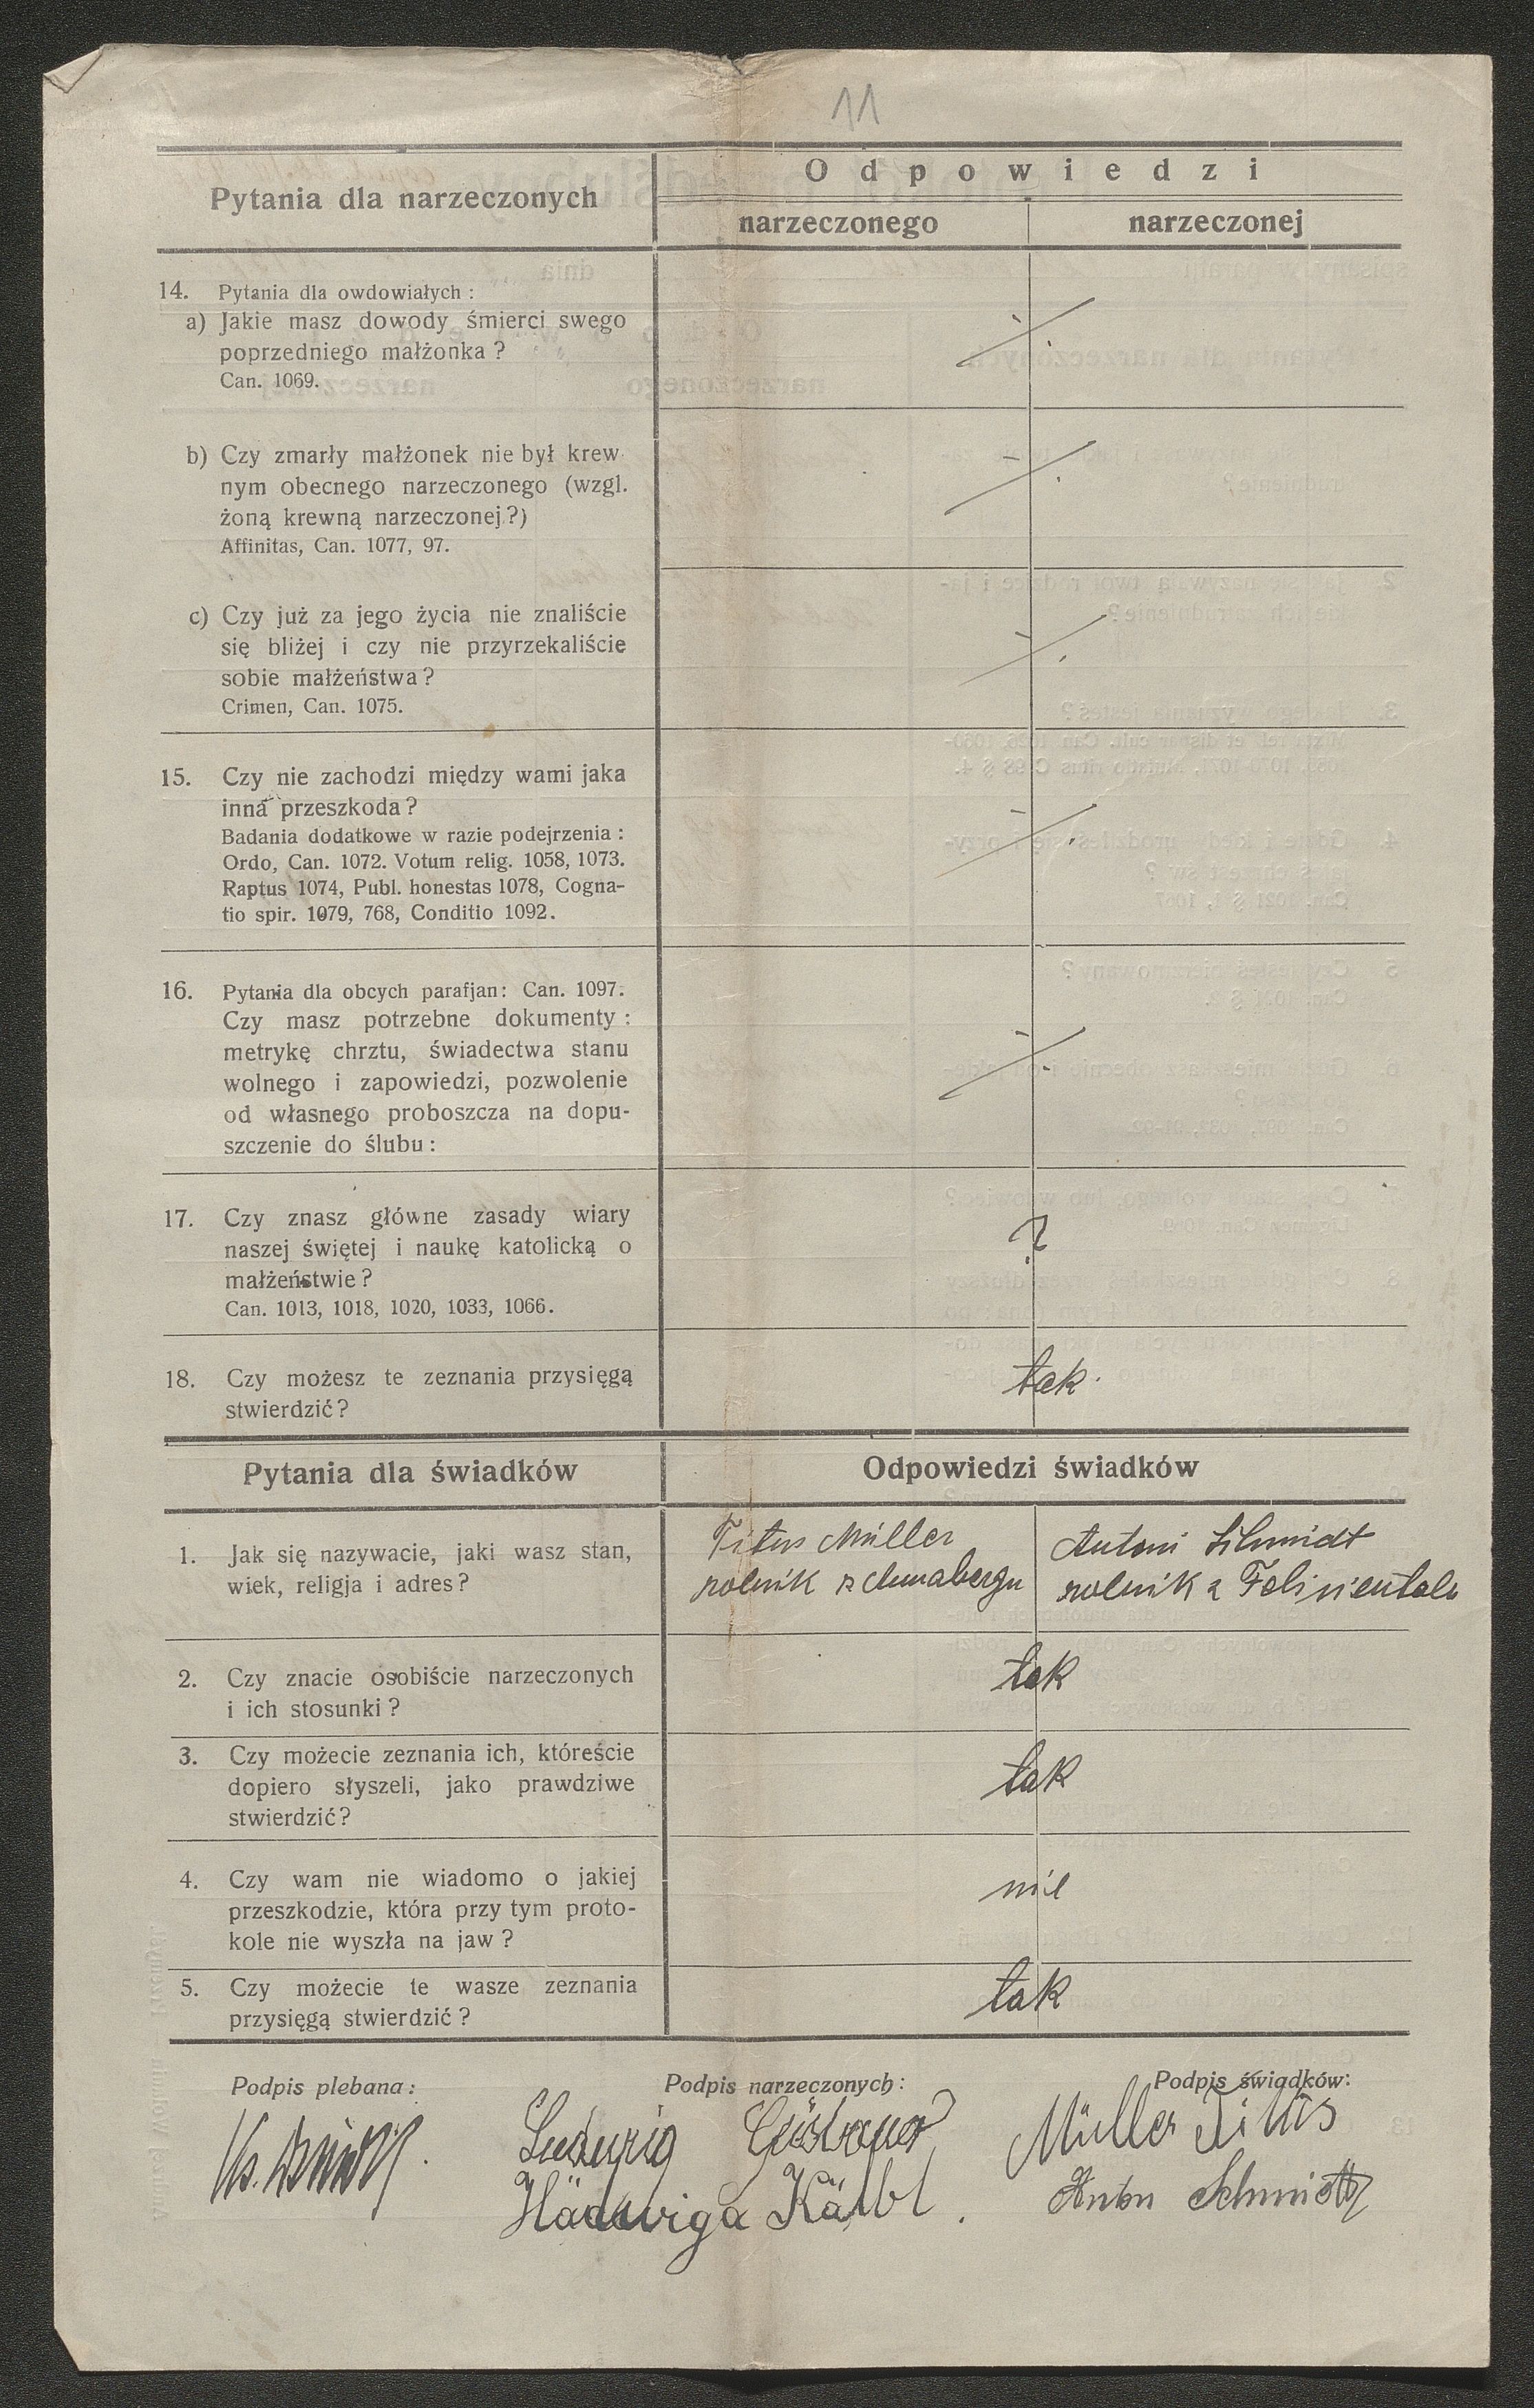 11
Pytania dla narzeczonych
Odpowiedzi
narzeczonego
narzeczonej
14. Pytania dla owdowiałych :
a) Jakie masz dowody śmierci swego
poprzedniego małżonka ?
Can. 1069.
b) Czy zmarły małżonek nie był krew-
nym obecnego narzeczonego (wzgl.
żoną krewną narzeczonej ?)
Affinitas, Can. 1077, 97.
c) Czy już za jego życia nie znaliście
się bliżej i czy nie przyrzekaliście
sobie małżeństwa ?
Crimen, Can. 1075.
15. Czy nie zachodzi między wami jaka
inna przeszkoda ?
Badania dodatkowe w razie podejrzenia :
Ordo, Can. 1072. Votum relig. 1058, 1073.
Raptus 1074, Publ. honestas 1078, Cogna-
tio spir. 1079, 768, Conditio 1092.
16. Pytania dla obcych parafjan: Can. 1097.
Czy masz potrzebne dokumenty :
metrykę chrztu, świadectwa stanu
wolnego i zapowiedzi, pozwolenie
od własnego proboszcza na dopu-
szczenie do ślubu :
17. Czy znasz główne zasady wiary
naszej świętej i naukę katolicką o
małżeństwie ?
Can. 1013, 1018, 1020, 1033, 1066.
?
18. Czy możesz te zeznania przysięgą
stwierdzić ?
tak
Pytania dla świadków
Odpowiedzi świadków
1. Jak się nazywacie, jaki wasz stan,
wiek, religja i adres ?
Titus Müller
rolnik z Annabergu
Antoni Schmidt
rolnik z Felizientalu
2. Czy znacie osobiście narzeczonych
i ich stosunki ?
tak
3. Czy możecie zeznania ich, któreście
dopiero słyszeli, jako prawdziwe
stwierdzić ?
tak
4. Czy wam nie wiadomo o jakiej
przeszkodzie, która przy tym proto-
kole nie wyszła na jaw ?
nie
5. Czy możecie te wasze zeznania
przysięgą stwierdzić ?
tak
Podpis plebana :
Podpis narzeczonych :
Podpis świadków:
Ks.
Ludwig
Hädwiga Kälbl
Müller Titus
Anton Schmidt